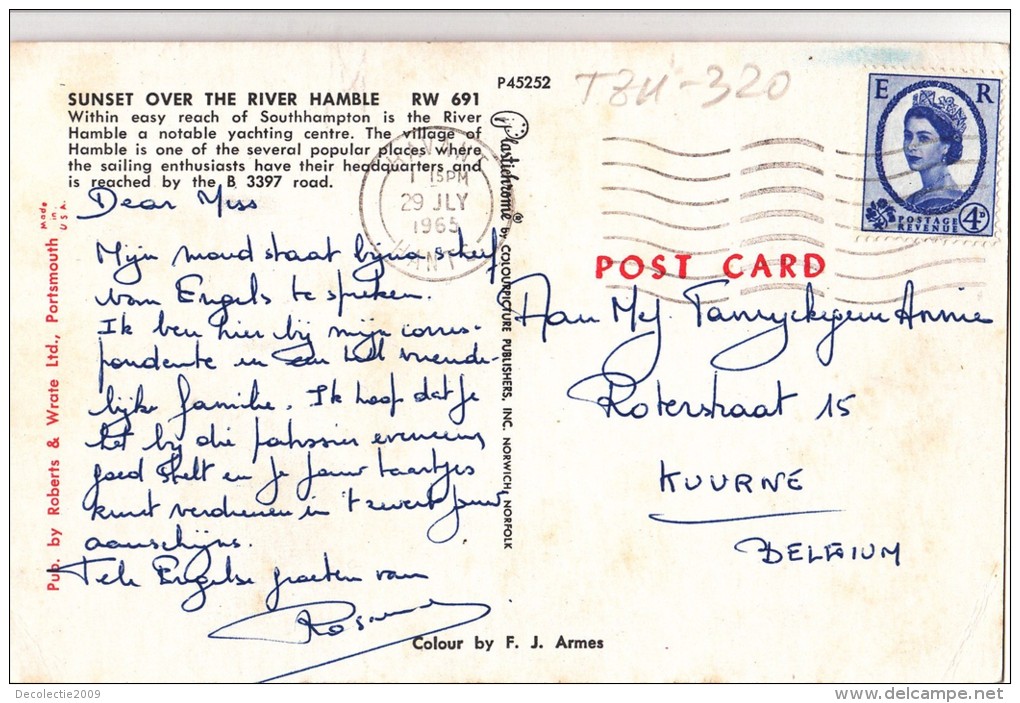 P45252
TZU-320
SUNSET OVER THE RIVER HAMBLE RW 691
Within easy reach of Southhampton is the River
Hamble a notable yachting centre. The village of
Hamble is one of the several popular places where
the sailing enthusiasts have their headquarters and
is reached by the B 3397 road.
HAVANT
1 15PM
29 JLY
1965
HANTS
E R
POSTAGE
REVENUE
4D
Dear Miss
Mijn mond staat bijna scheef
van Engels te spreken.
Ik ben hier bij mijn corres-
pondente in een heel vriende-
lijke familie. Ik hoop dat je
het bij die patissier eveneens
goed stelt en je jouw taartjes
kunt verdienen in 't zweet jouw
aanschijns.
Vele Engelse groeten van
POST CARD
Aan Mej. Annie
Roterstraat 15
KUURNE
BELGIUM
Made in U.S.A.
Pub. by Roberts & Wrate Ltd., Portsmouth
Plastichrome® by COLOURPICTURE PUBLISHERS, INC. NORWICH, NORFOLK
Colour by F. J. Armes
Decolectie2009
delcampe.net